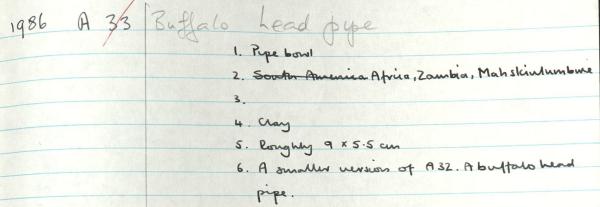 1986 A 33 Buffalo head pipe
1. Pipe bowl
2. South America Africa, Zambia,
3.
4. Clay
5. Roughly 9 x 5.5 cm
6. A smaller version of A32. A buffalo head
pipe.